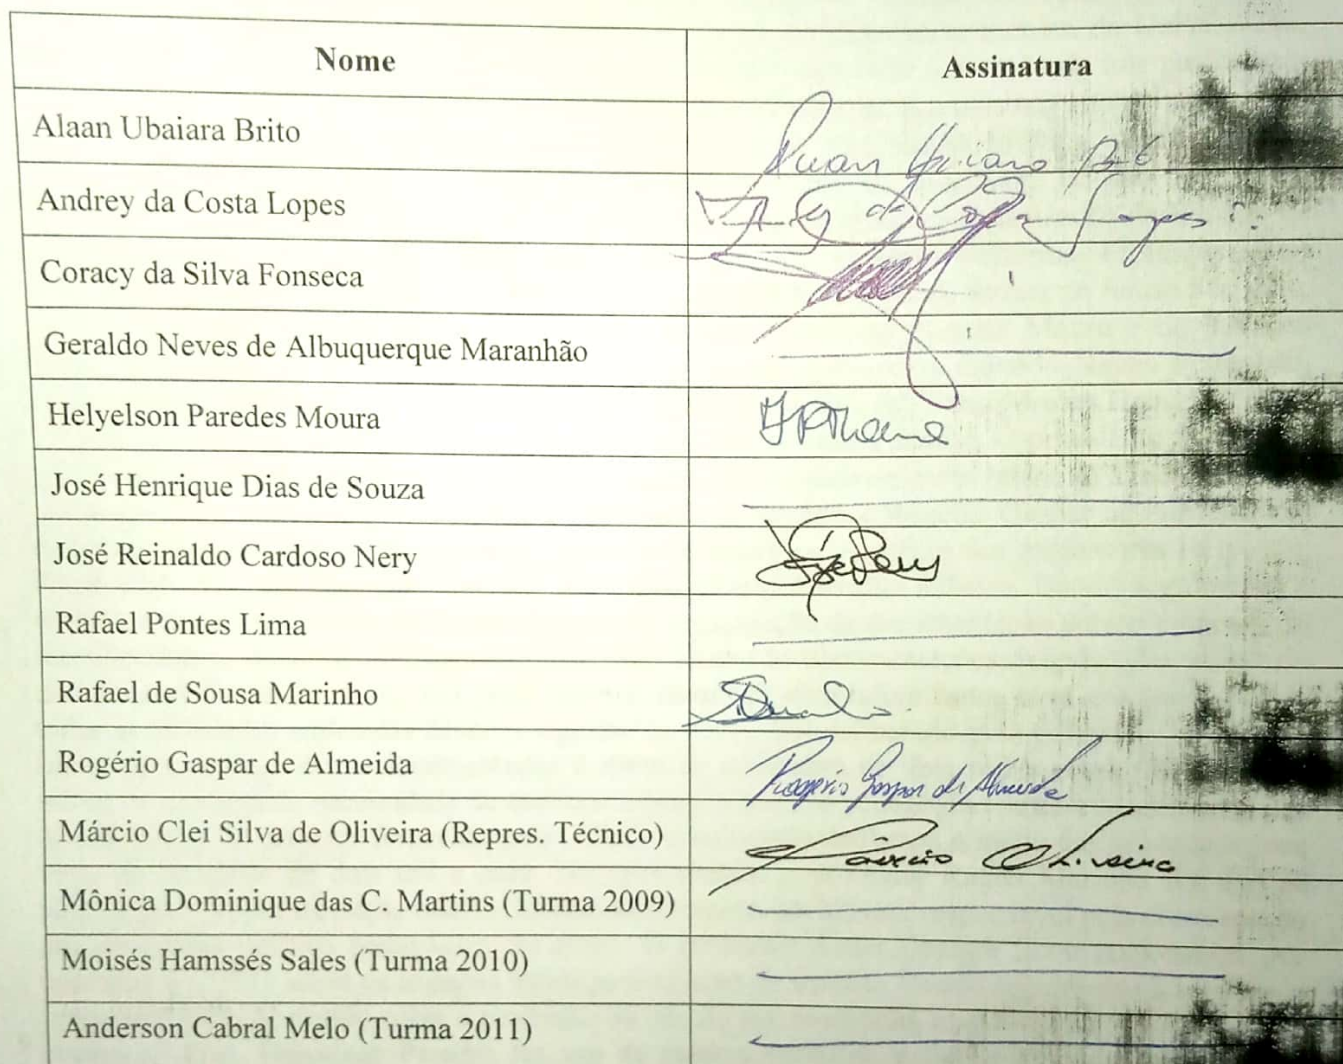 Nome Assinatura
Alaan Ubaiara Brito
Andrey da Costa Lopes
Coracy da Silva Fonseca
Geraldo Neves de Albuquerque Maranhão
Helyelson Paredes Moura
José Henrique Dias de Souza
José Reinaldo Cardoso Nery
Rafael Pontes Lima
Rafael de Sousa Marinho
Rogério Gaspar de Almeida Rogério Gaspar de Almeida
Márcio Clei Silva de Oliveira (Repres. Técnico) Márcio Oliveira
Mônica Dominique das C. Martins (Turma 2009)
Moisés Hamssés Sales (Turma 2010)
Anderson Cabral Melo (Turma 2011)